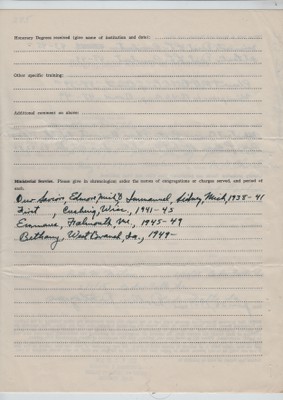 Honorary Degrees received (give name of institution and date):
Other specific training:
Additional comment on above:
Ministerial Service. Please give in chronological order the names of congregations or charges served, and period of
each.
Our Savior, Edmore, Immanuel, Sidney, Mich, 1938-41
First, Cushing, Wisc., 1941-45
Emmaus, Falmouth, Me., 1945-49
Bethany, West Branch, Ia., 1949-